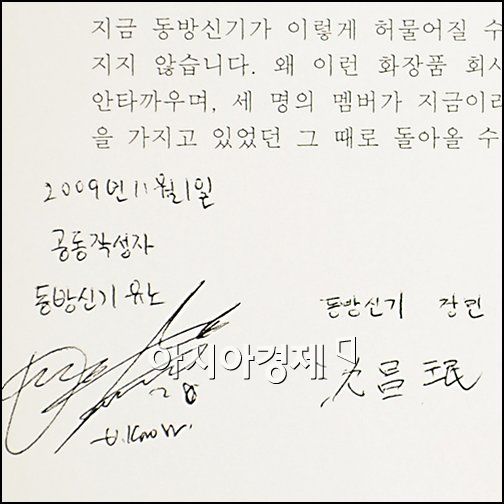 지금 동방신기가 이렇게 허물어질 수
지지 않습니다. 왜 이런 화장품 회사
안타까우며, 세 명의 멤버가 지금이라
을 가지고 있었던 그 때로 돌아올 수
2009년 11월 1일
공동작성자
동방신기 유노
동방신기 창민
아시아경제
沈昌珉
U.Know.